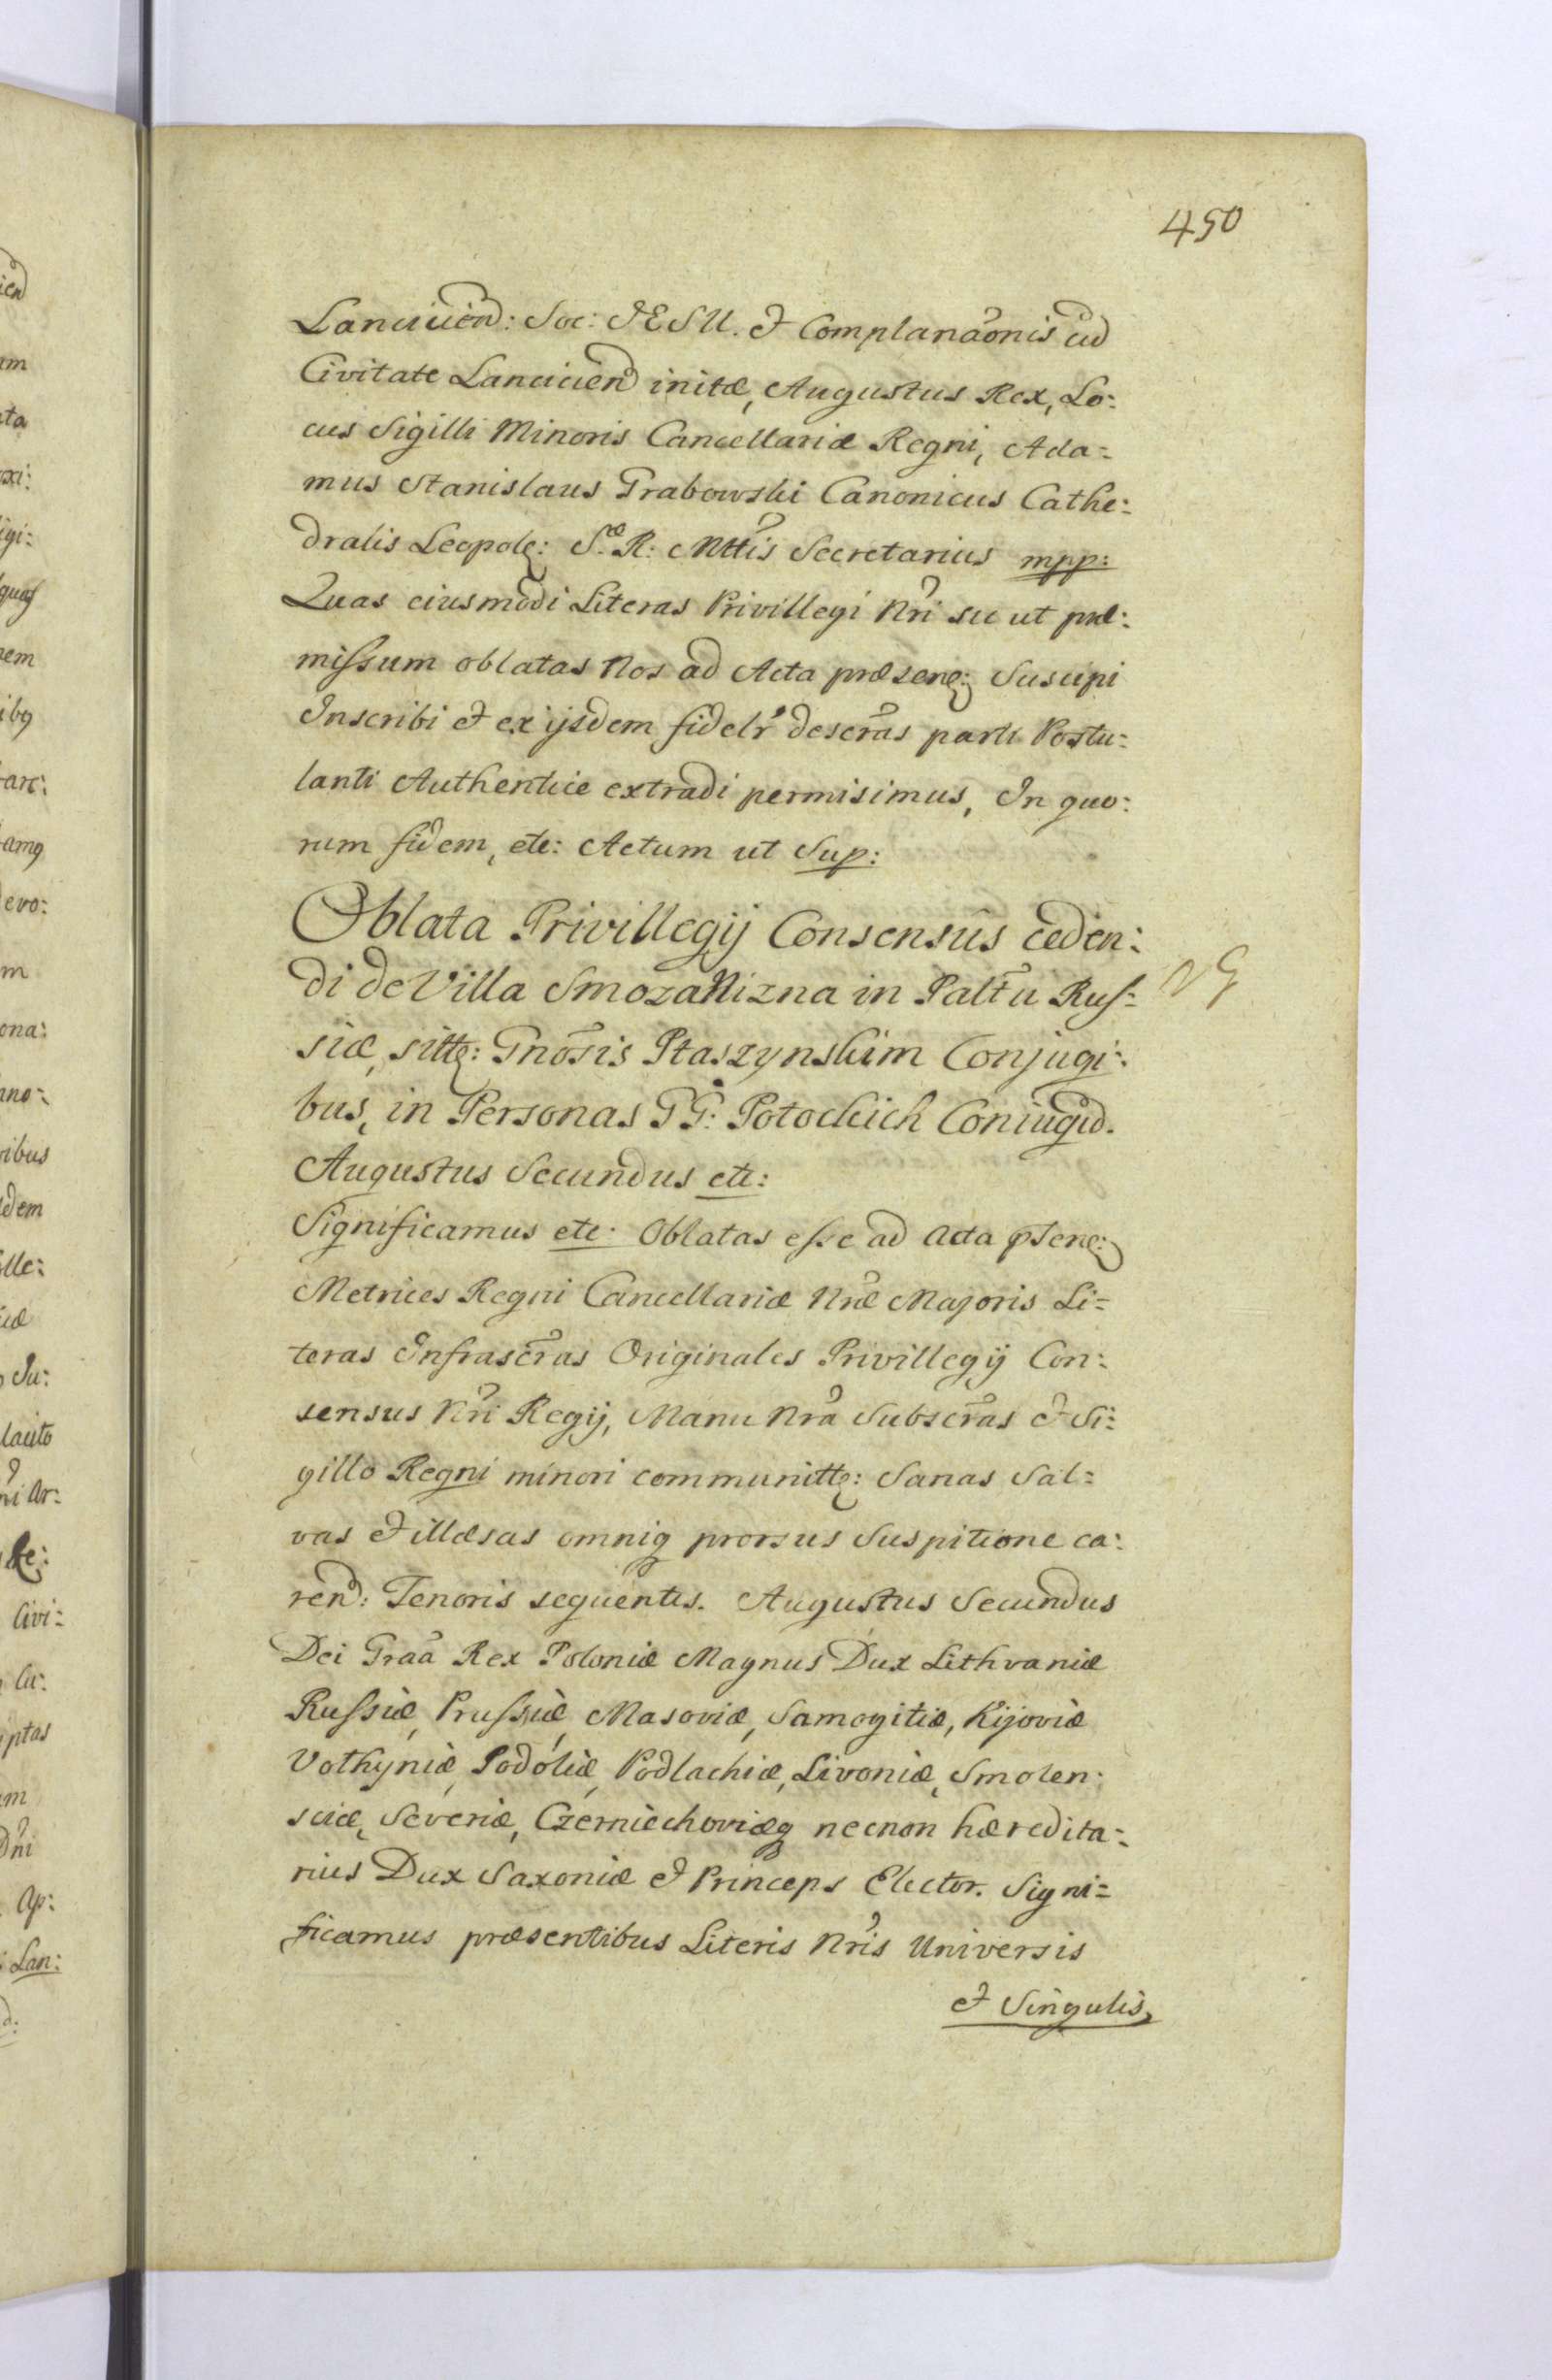 450
Lanciciēn: Soc: JESU. et Complanāonis cū
Civitate Lanciciēn initæ, Augustus Rex, Lo:
cus Sigilli Minoris Cancellariæ Regni, Ada=
mus Stanislaus Grabowski Canonicus Cathe:
dralis Leopolę: S.æ R: Mttis Secretarius mpp:
Quas eiusmodi Literas Privillegi Nri su ut præ:
missum oblatas Nos ad Acta præsenę: Suscipi
Inscribi et ex ijsdem fidelr descras parti Postu:
lanti Authentice extradi permisimus, In quo:
rum fidem, etc: Actum ut Sup:
Oblata Privillegij Consensûs ceden:
di de Villa Smoza Nizna in Palt̃u Rus=
siæ, sittę: Gnosis Ptaszynskim Conjugi:
bus, in Personas GG: Potockich Coniugū.
NG
Augustus Secundus etc:
Significamus etc. Oblatas esse ad Acta pṡenę:
Metrices Regni Cancellariæ Nræ Majoris Li=
teras Infrascras Originales Privillegij Con:
sensus Nri Regij, Manu Nra Subscras et Si:
gillo Regni minori communittę: Sanas Sal=
vas et illæsas omniq prorsus Suspitione ca:
reñ: Tenoris sequentis. Augustus Secundus
Dei Graa Rex Poloniæ Magnus Dux Lithvaniæ
Russiæ, Prussiæ, Masoviæ, Samogitiæ, Kijoviæ
Volhyniæ, Podoliæ, Podlachiæ, Livoniæ, Smolen:
sciæ, Severiæ, Czerniechoviæq necnon hæredita=
rius Dux Saxoniæ et Princeps Elector. Signi=
ficamus præsentibus Literis Nris Universis
et Singulis,